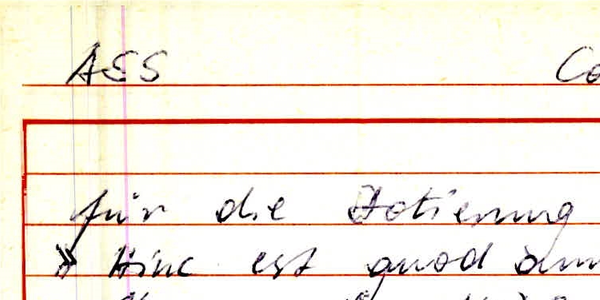 AES Co
für die Datierung
» Hinc est quod